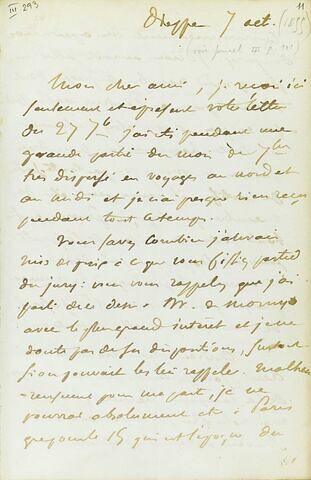 III 293
11
Dieppe 7 oct.
(1855)
(voir Journal III p.
Mon cher ami, je reçois ici
seulement et à présent votre lettre
du 27 7b. J'ai été pendant une
grande partie du mois de 7bre
très dispersé en voyages au nord et
au midi et je n'ai presque rien reçu
pendant tout ce temps.
Vous savez combien j'attachais
de prix à ce que vous fissiez partie
du jury: vous vous rappelez que j'ai
parlé de ce désir à Mr. de Morny
avec le plus grand intérêt et je ne
doute pas de ses dispositions, surtout
si on pouvait les lui rappeler. Malheu
-reusement pour ma part, je ne
pourrai absolument être à Paris
que
15 qui est l'époque du